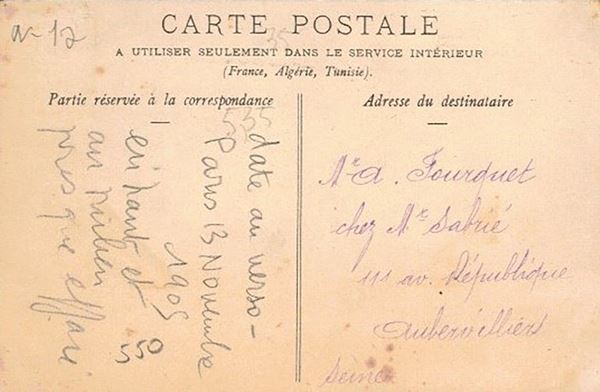 a-17
CARTE POSTALE
35
A UTILISER SEULEMENT DANS LE SERVICE INTÉRIEUR
(France, Algérie, Tunisie).
Partie réservée à la correspondance
535
date au verso -
Paris 13 Novembre
1905
en haut et
au milieu
presque effacé
550
Adresse du destinataire
Mr A. Fourquet
chez Mr Sabrié
111 av. République
Aubervilliers
Seine